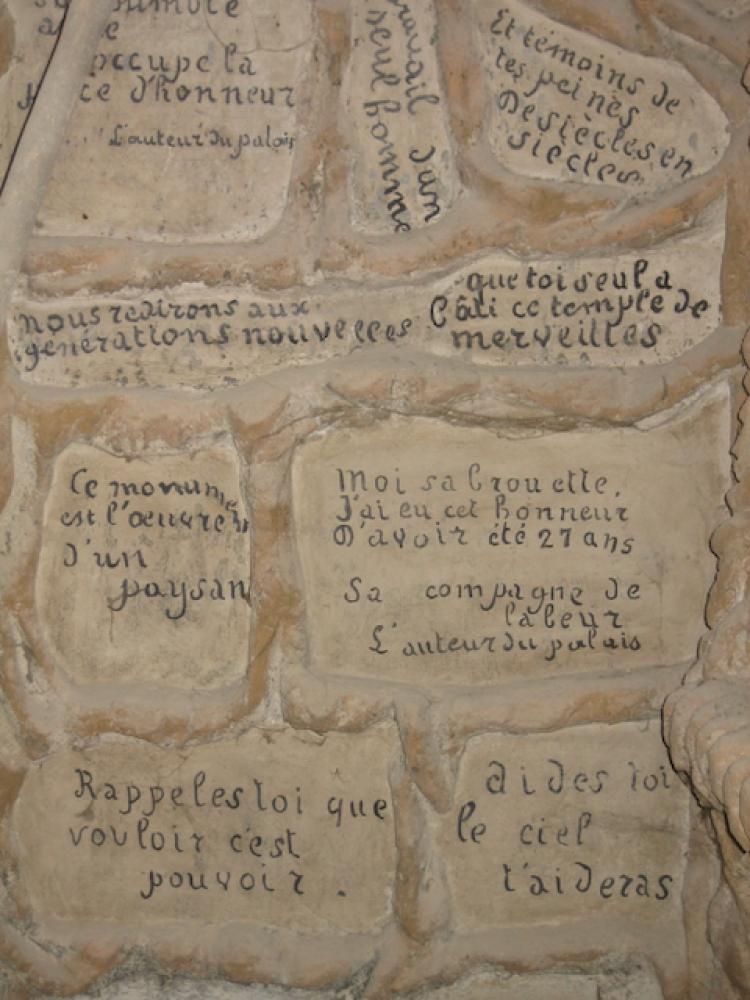 humble
occupe la
d'honneur
L'auteur du palais
travail d'un
seul homme
Et témoins de
tes peines
De siècles en
siècles
nous redirons aux
générations nouvelles
que toi seul a
bâti ce temple de
merveilles
Ce monume
est l'œuvre
d'un
paysan
Moi sa brouette,
J'ai eu cet honneur
D'avoir été 27 ans
Sa compagne de
labeur
L'auteur du palais
Rappeles toi que
vouloir c'est
pouvoir .
aides toi
le ciel
t'aideras